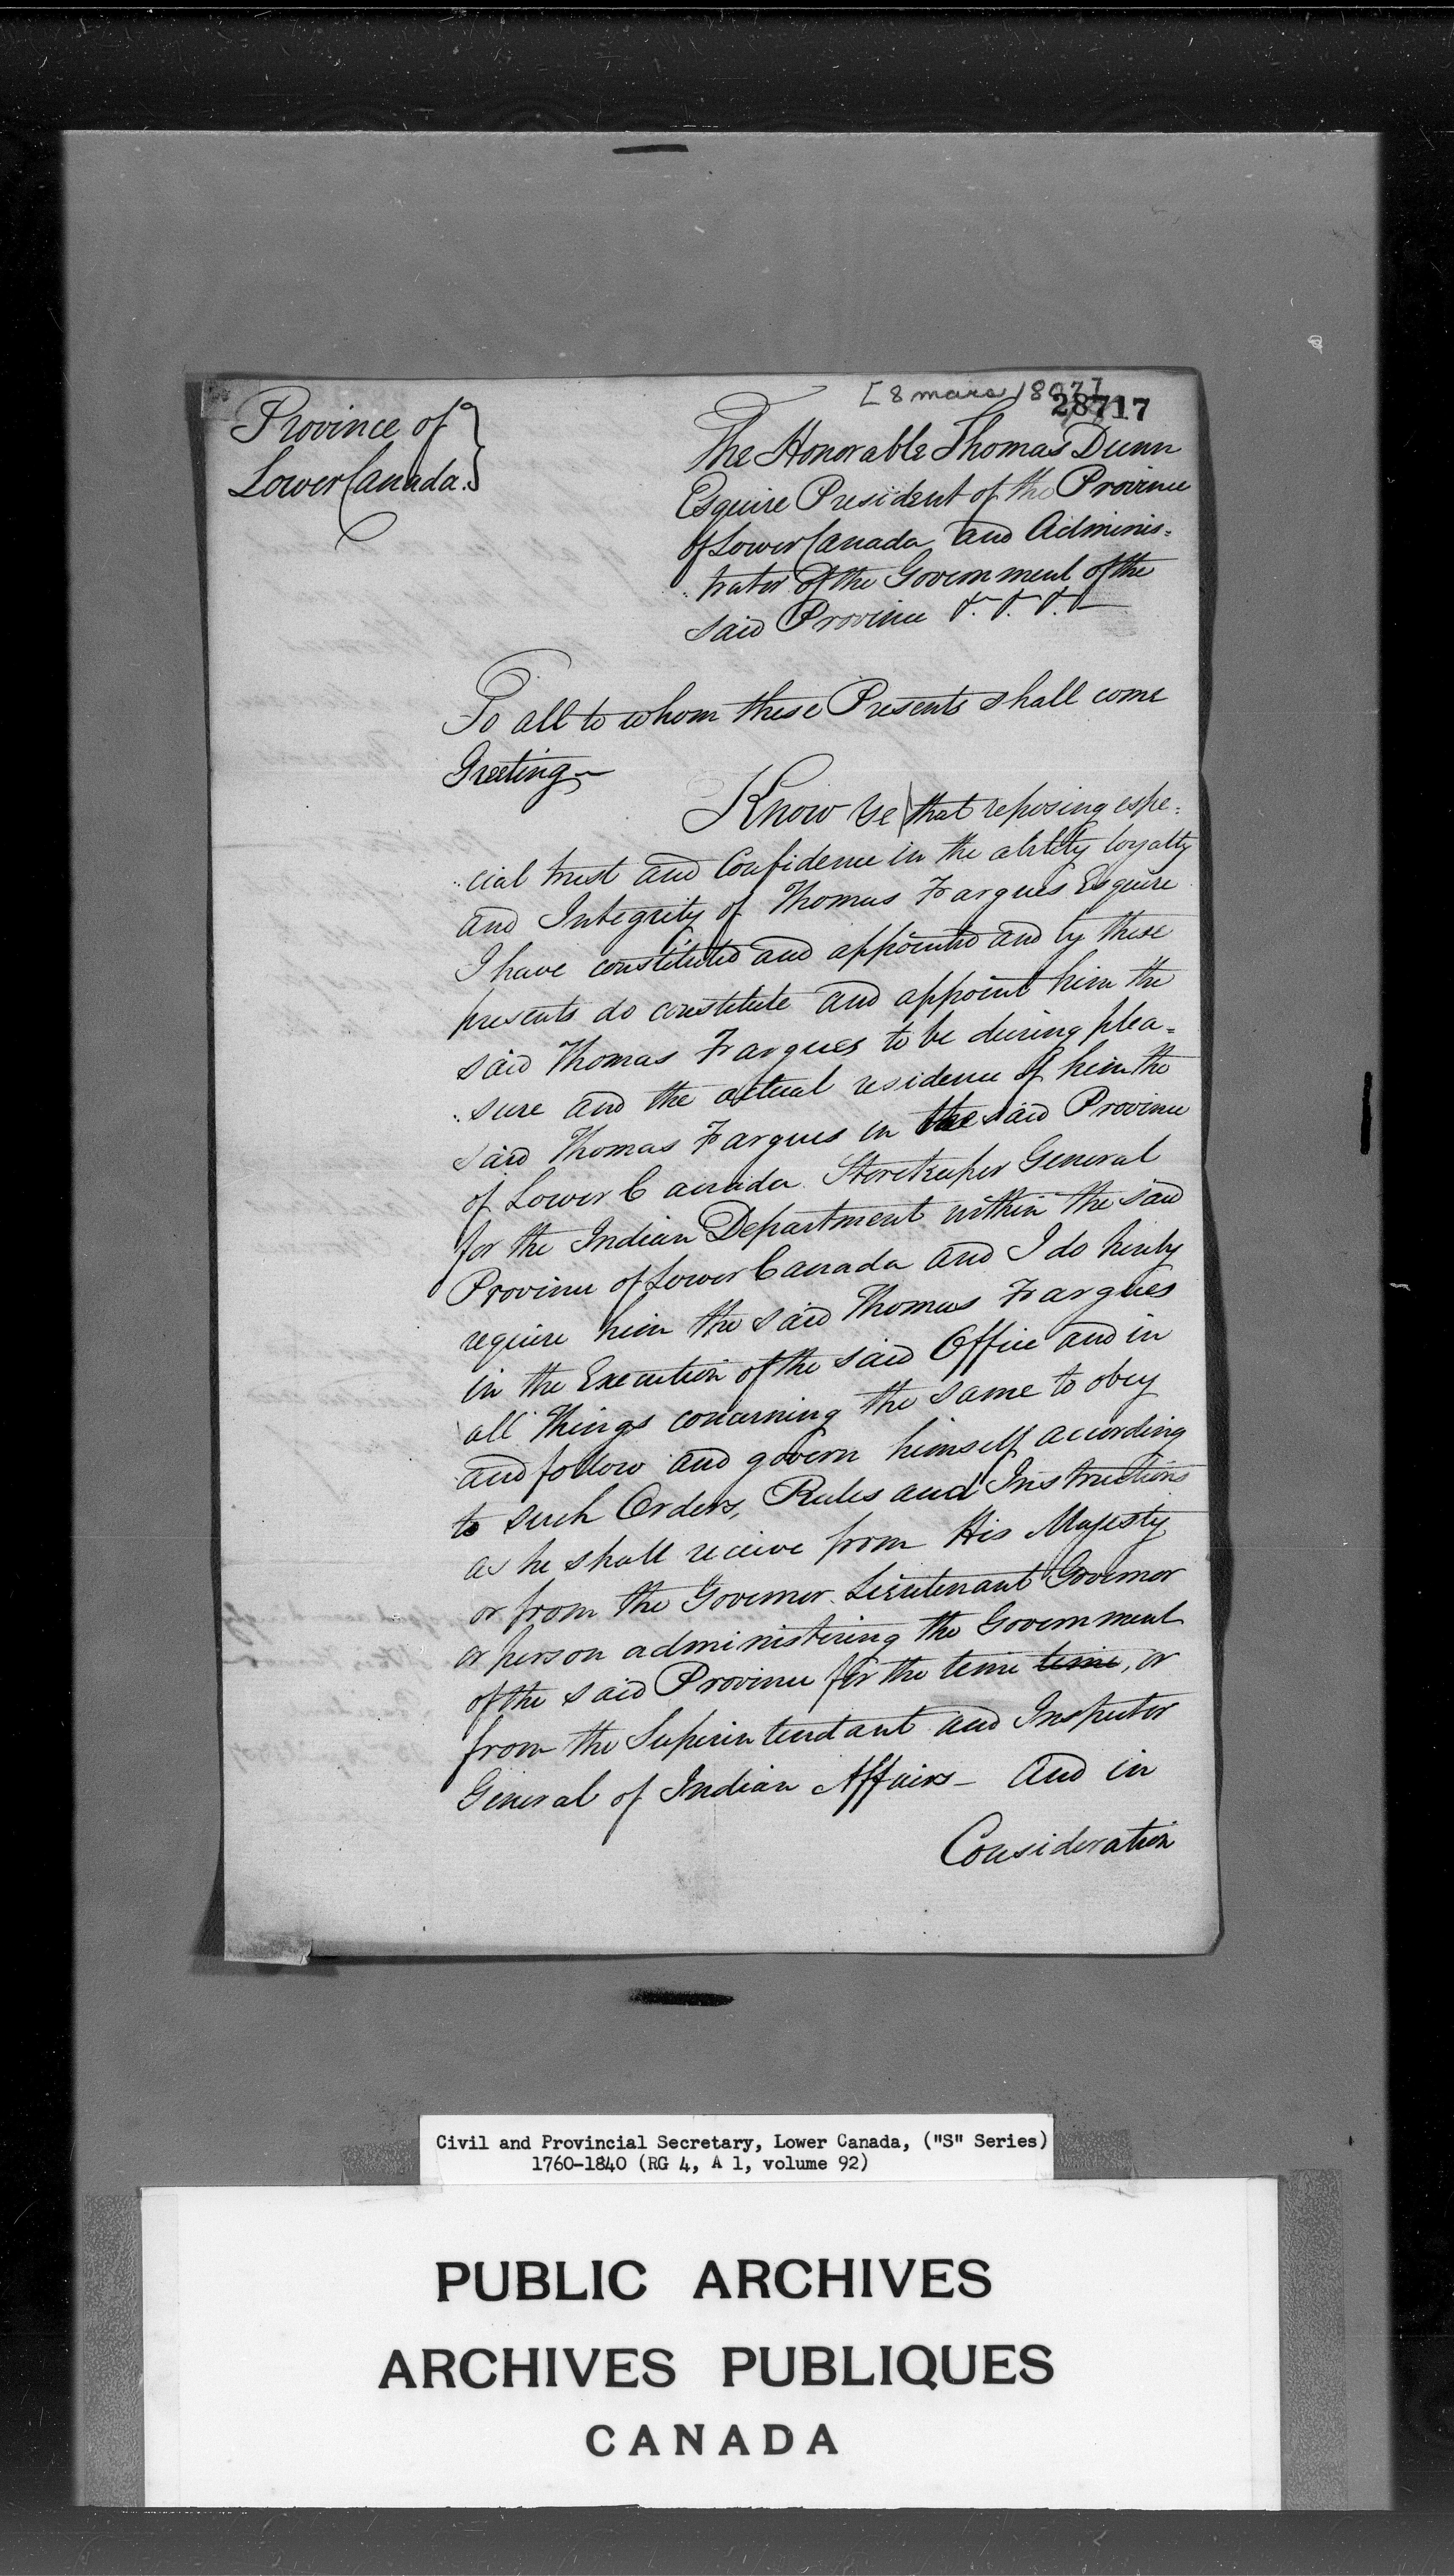 [8 mars 1807]
28717
Province of
Lower Canada.
The Honorable Thomas Dunn
Esquire President of the Province
of Lower Canada and Adminis=
trator of the Government of the
said Province &. &. &. &
To all to whom these Presents shall come
Greeting
Know Ye that reposing espe=
cial trust and Confidence in the ability loyalty
and Integrity of Thomas Fargues Esquire
I have constituted and appointed and by these
presents do constitute and appoint him the
said Thomas Fargues to be during plea=
sure and the actual residence of him the
said Thomas Fargues in the said Province
of Lower Canada Storekeeper General
for the Indian Department within the said
Province of Lower Canada and I do hereby
require him the said Thomas Fargues
in the Execution of the said Office and in
all Things concerning the same to obey
and follow and govern himself according
to such Orders, Rules and Instructions
as he shall receive from His Majesty
or from the Governor Lieutenant Governor
or person administering the Government
of the said Province for the time time, or
from the Superintendant and Inspector
General of Indian Affairs - and in
Consideration
Civil and Provincial Secretary, Lower Canada, ("S" Series)
1760-1840 (RG 4, A 1, volume 92)
PUBLIC ARCHIVES
ARCHIVES PUBLIQUES
CANADA